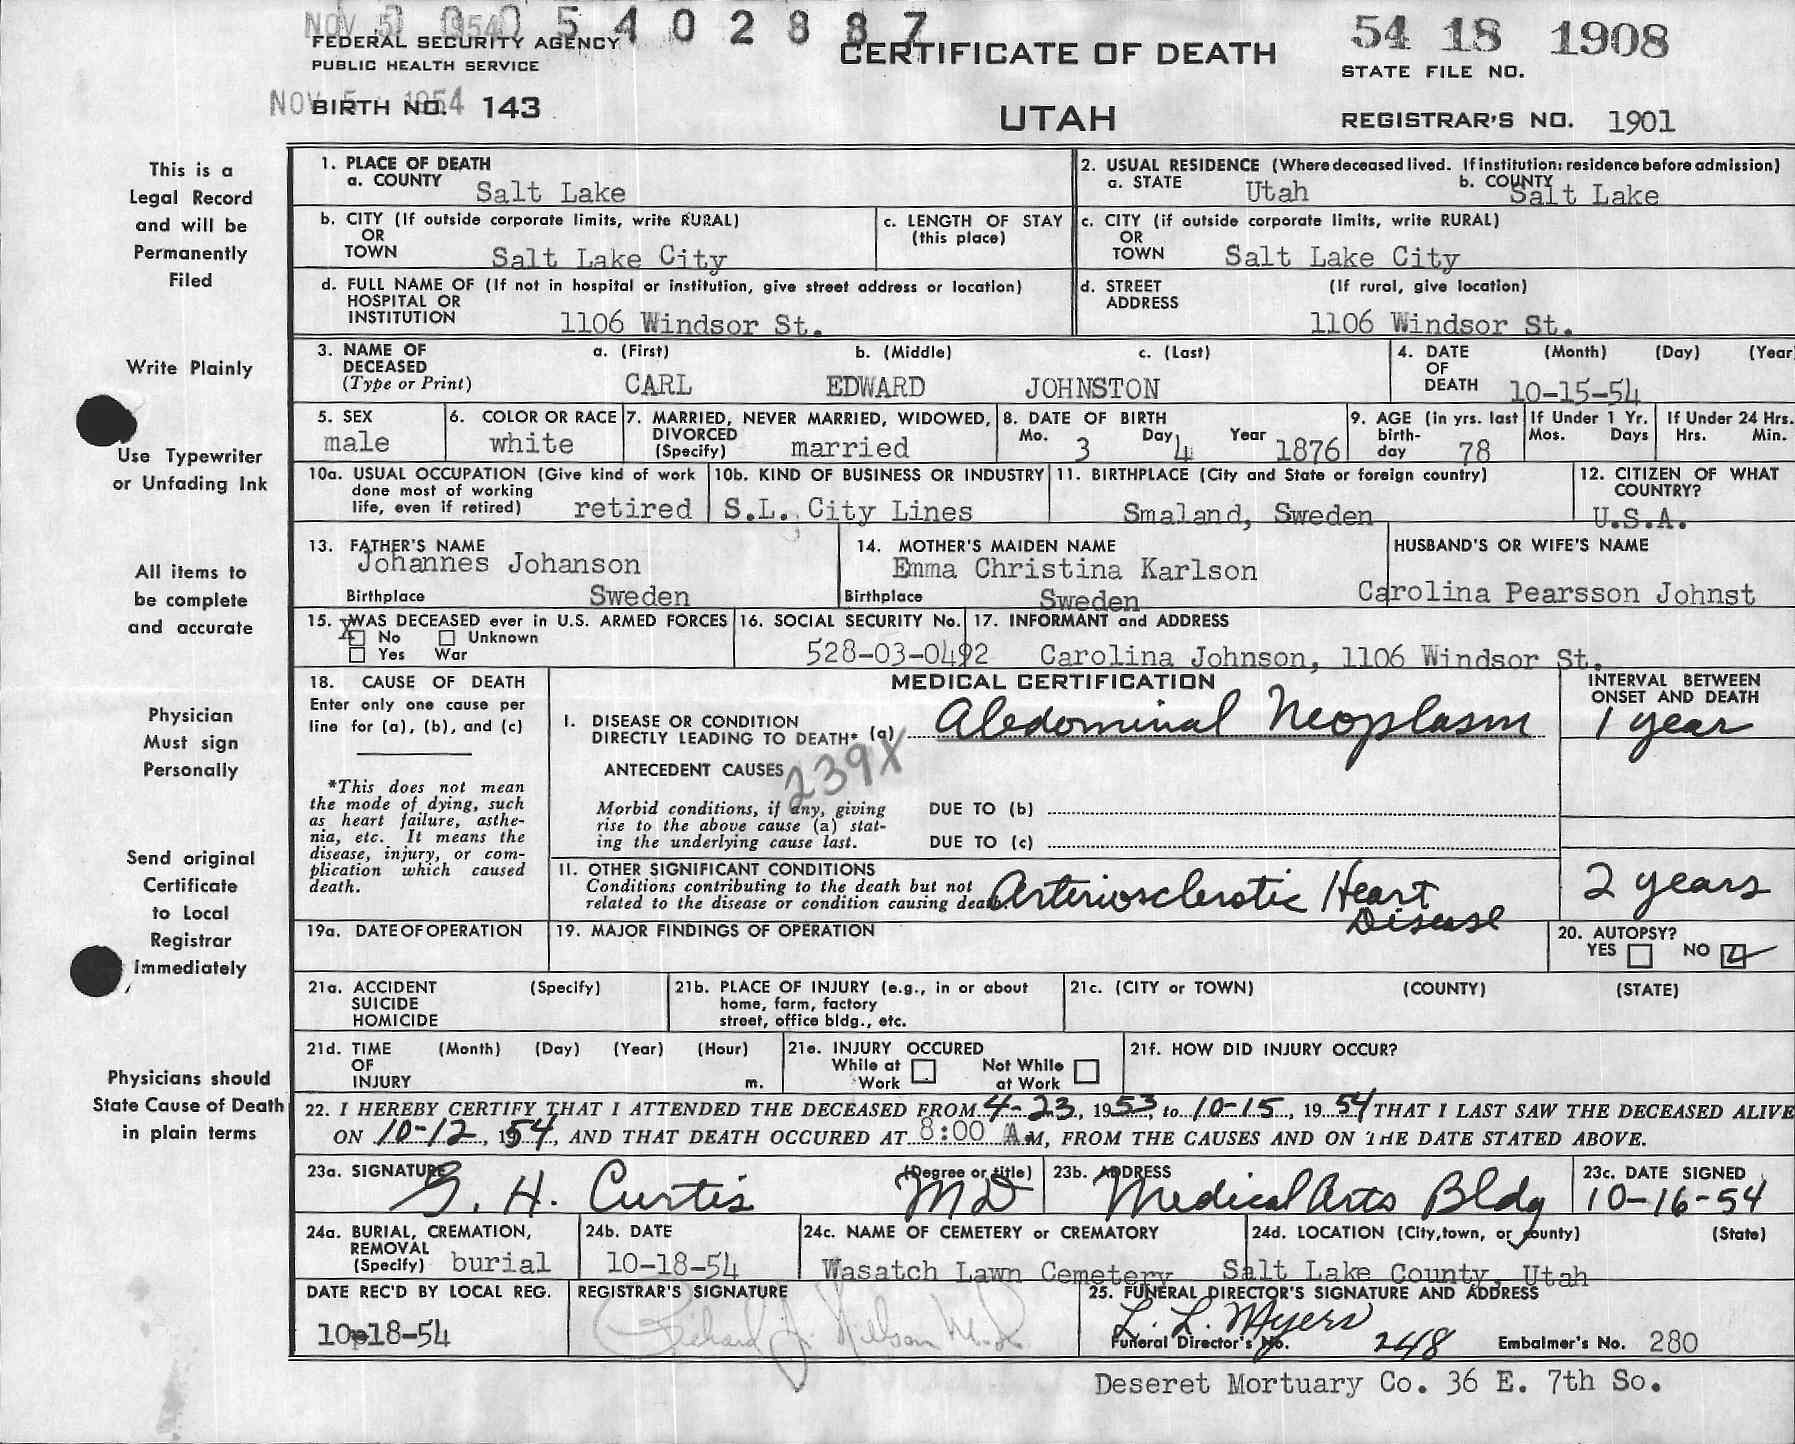 NOV 5 1954 0 5 4 0 2 8 8 7
FEDERAL SECURITY AGENCY
PUBLIC HEALTH SERVICE
CERTIFICATE OF DEATH
54 18 1908
STATE FILE NO.
NOV 5 1954
BIRTH NO. 143
UTAH
REGISTRAR'S NO. 1901
This is a
Legal Record
and will be
Permanently
Filed
Write Plainly
Use Typewriter
or Unfading Ink
All items to
be complete
and accurate
Physician
Must sign
Personally
Send original
Certificate
to Local
Registrar
immediately
Physicians should
State Cause of Death
in plain terms
1. PLACE OF DEATH
a. COUNTY Salt Lake
2. USUAL RESIDENCE (Where deceased lived. If institution: residence before admission)
a. STATE Utah b. COUNTY Salt Lake
b. CITY (If outside corporate limits, write RURAL)
OR
TOWN Salt Lake City
c. LENGTH OF STAY
(this place)
c. CITY (if outside corporate limits, write RURAL)
OR
TOWN Salt Lake City
d. FULL NAME OF (If not in hospital or institution, give street address or location)
HOSPITAL OR
INSTITUTION 1106 Windsor St.
d. STREET (If rural, give location)
ADDRESS
1106 Windsor St.
3. NAME OF a. (First) b. (Middle) c. (Last)
DECEASED
(Type or Print) CARL EDWARD JOHNSTON
4. DATE (Month) (Day) (Year
OF
DEATH 10-15-54
5. SEX
male
6. COLOR OR RACE
white
7. MARRIED, NEVER MARRIED, WIDOWED,
DIVORCED
(Specify) married
8. DATE OF BIRTH
Mo. 3 Day 4 Year 1876
9. AGE (in yrs. last
birth-
day 78
If Under 1 Yr.
Mos. Days
If Under 24 Hrs.
Hrs. Min.
10a. USUAL OCCUPATION (Give kind of work
done most of working
life, even if retired) retired
10b. KIND OF BUSINESS OR INDUSTRY
S.L. City Lines
11. BIRTHPLACE (City and State or foreign country)
Smaland, Sweden
12. CITIZEN OF WHAT
COUNTRY?
U.S.A.
13. FATHER'S NAME
Johannes Johanson
Birthplace Sweden
14. MOTHER'S MAIDEN NAME
Emma Christina Karlson
Birthplace Sweden
HUSBAND'S OR WIFE'S NAME
Carolina Pearsson Johnst
15. WAS DECEASED ever in U.S. ARMED FORCES
X No Unknown
Yes War
16. SOCIAL SECURITY No.
528-03-0492
17. INFORMANT and ADDRESS
Carolina Johnson, 1106 Windsor St.
18. CAUSE OF DEATH
Enter only one cause per
line for (a), (b), and (c)
*This does not mean
the mode of dying, such
as heart failure, asthe-
nia, etc. It means the
disease, injury, or com-
plication which caused
death.
MEDICAL CERTIFICATION
INTERVAL BETWEEN
ONSET AND DEATH
I. DISEASE OR CONDITION
DIRECTLY LEADING TO DEATH* (a) Abdominal Neoplasm 1 year
239X
ANTECEDENT CAUSES
Morbid conditions, if any, giving
rise to the above cause (a) stat-
ing the underlying cause last.
DUE TO (b)
DUE TO (c)
II. OTHER SIGNIFICANT CONDITIONS
Conditions contributing to the death but not
related to the disease or condition causing death.
Arteriosclerotic Heart
Disease
2 years
19a. DATE OF OPERATION
19. MAJOR FINDINGS OF OPERATION
20. AUTOPSY?
YES NO
21a. ACCIDENT (Specify)
SUICIDE
HOMICIDE
21b. PLACE OF INJURY (e.g., in or about
home, farm, factory
street, office bldg., etc.
21c. (CITY or TOWN) (COUNTY) (STATE)
21d. TIME (Month) (Day) (Year) (Hour)
OF
INJURY m.
21e. INJURY OCCURED
While at Not While
Work at Work
21f. HOW DID INJURY OCCUR?
22. I HEREBY CERTIFY THAT I ATTENDED THE DECEASED FROM 4-23, 1953, to 10-15, 1954 THAT I LAST SAW THE DECEASED ALIVE
ON 10-12, 1954, AND THAT DEATH OCCURED AT 8:00 A.M, FROM THE CAUSES AND ON THE DATE STATED ABOVE.
23a. SIGNATURE (Degree or title)
G. H. Curtis MD
23b. ADDRESS
Medical Arts Bldg
23c. DATE SIGNED
10-16-54
24a. BURIAL, CREMATION,
REMOVAL
(Specify) burial
24b. DATE
10-18-54
24c. NAME OF CEMETERY or CREMATORY
Wasatch Lawn Cemetery
24d. LOCATION (City, town, or county) (State)
Salt Lake County, Utah
DATE REC'D BY LOCAL REG.
10-18-54
REGISTRAR'S SIGNATURE
Richard J. Nelson M.D.
25. FUNERAL DIRECTOR'S SIGNATURE AND ADDRESS
L. L. Myers
Funeral Director's No. 248 Embalmer's No. 280
Deseret Mortuary Co. 36 E. 7th So.